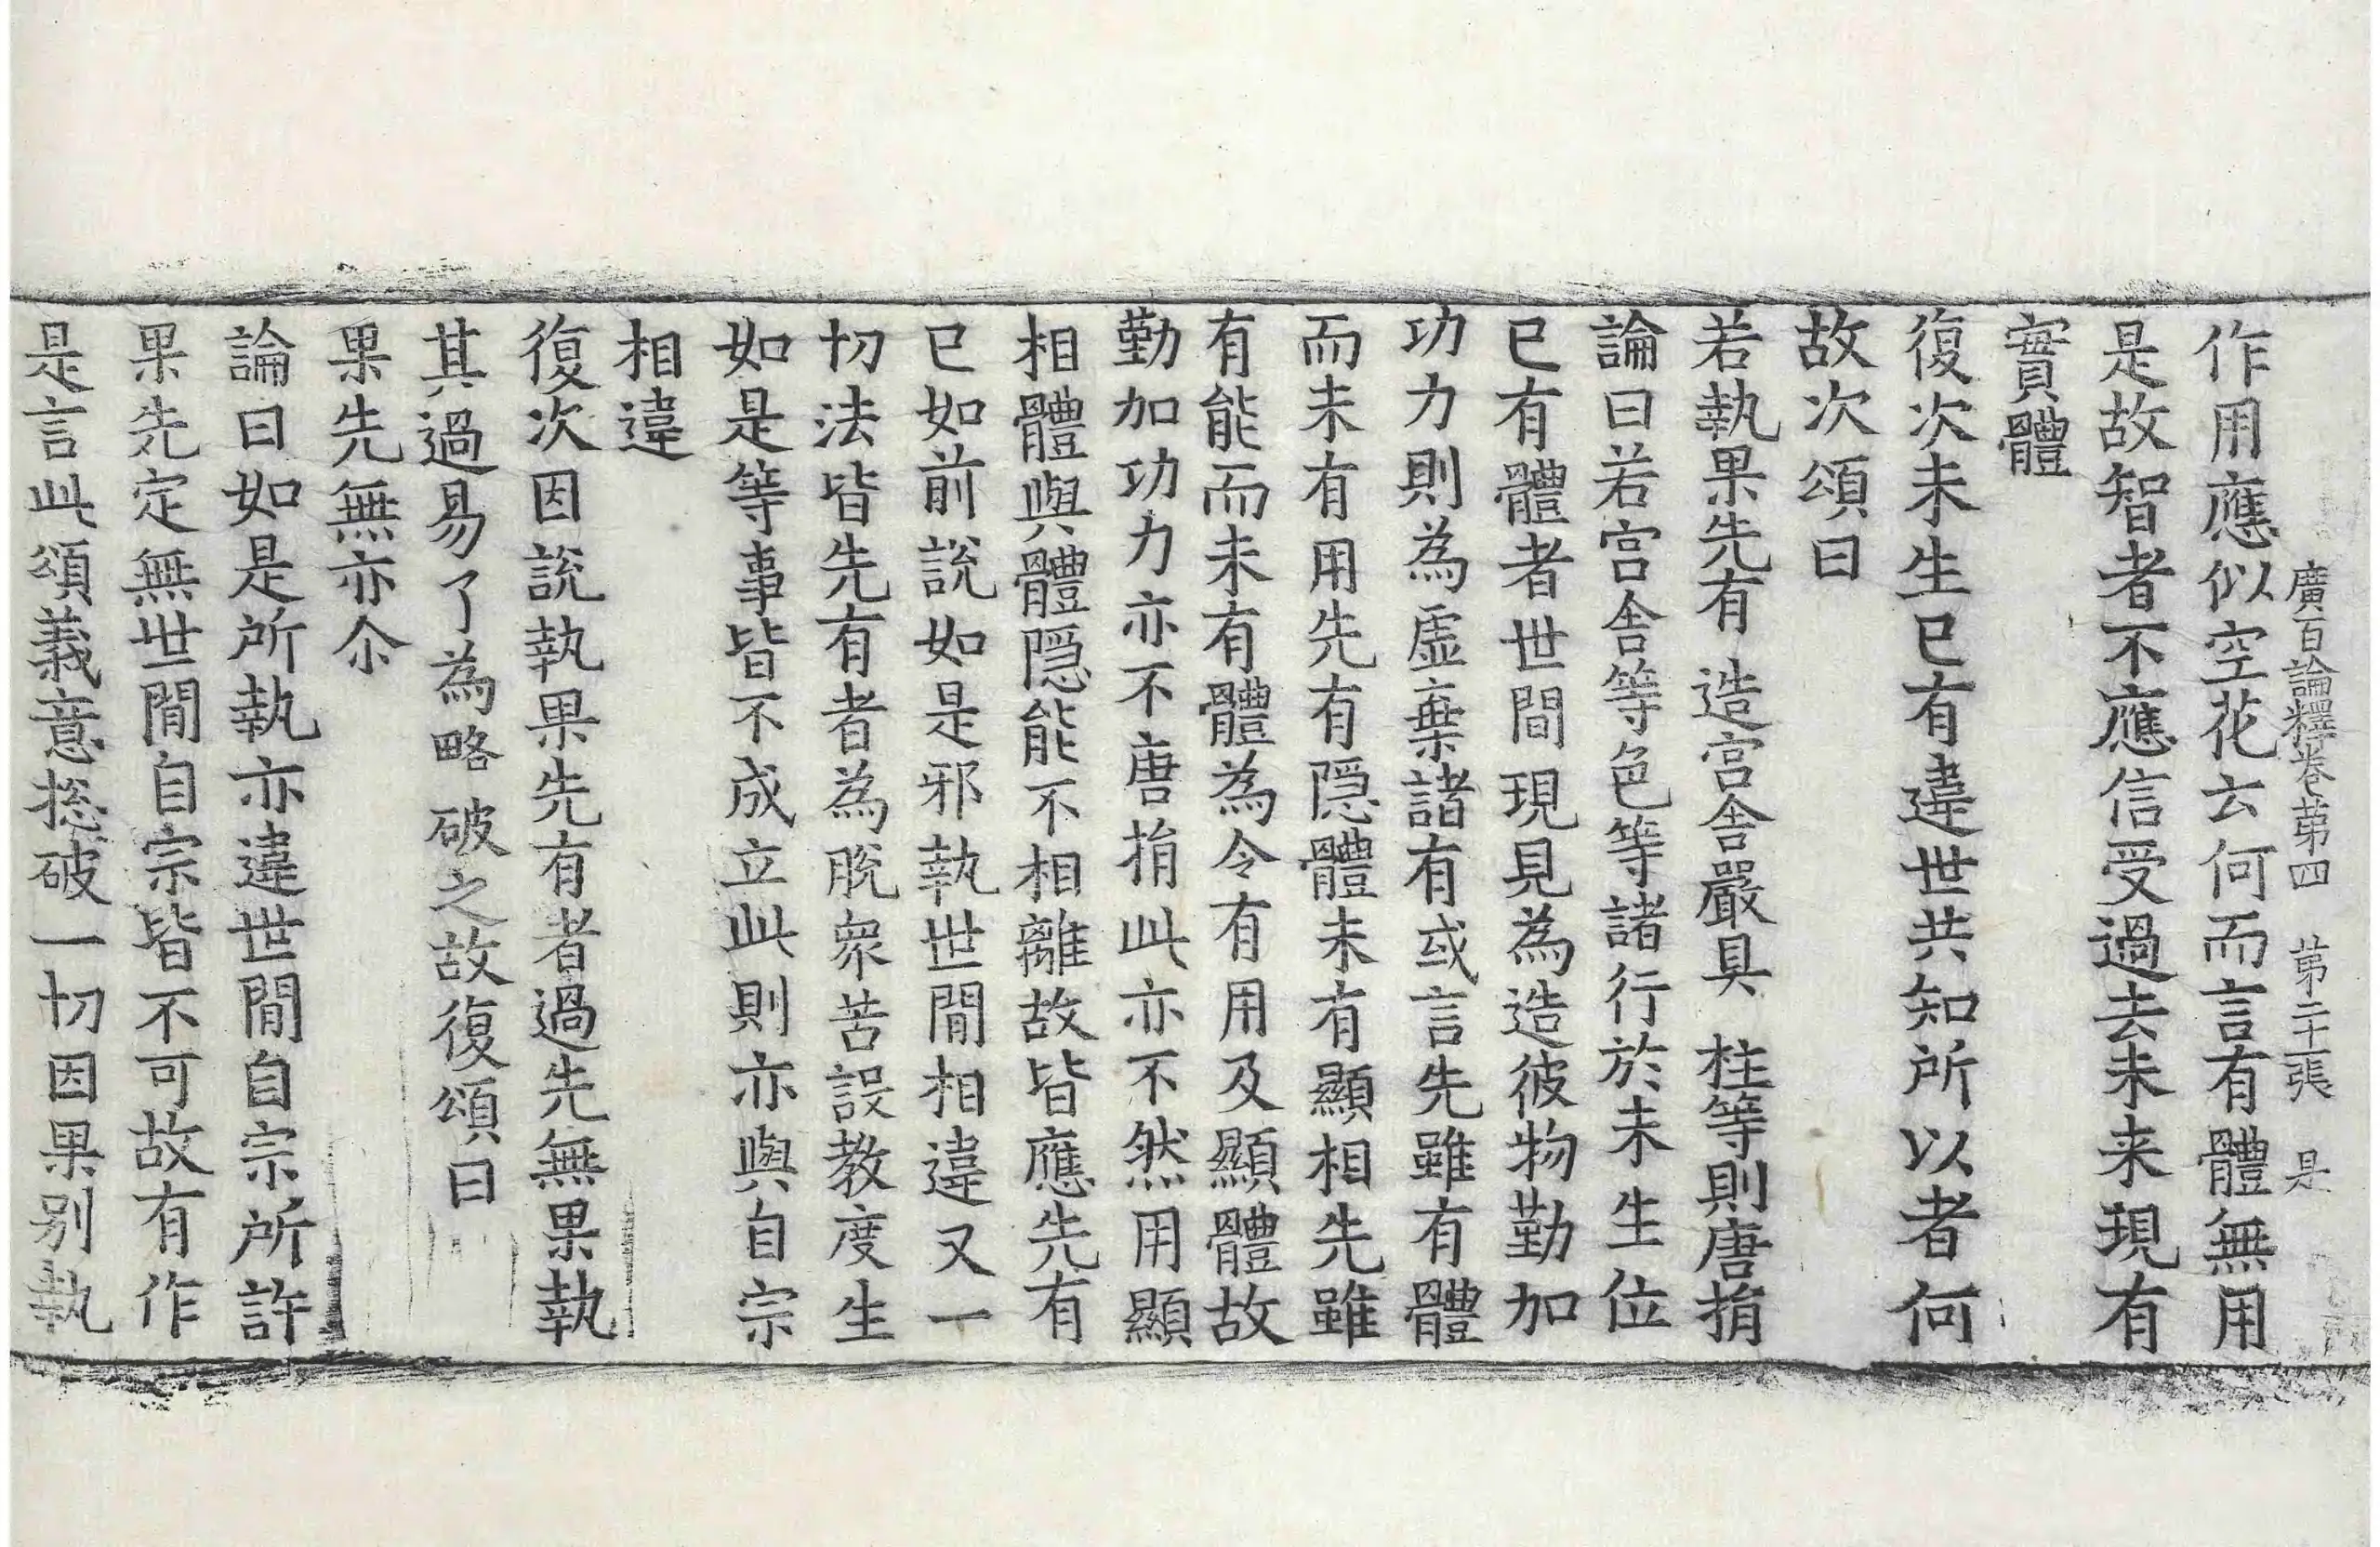 廣百論釋卷苐四　苐二十張　是
作用應似空花云何而言有體無用
是故智者不應信受過去未来現有
實體
復次未生已有違世共知所以者何
故次頌曰
若執果先有　造宫舎嚴具　柱等則唐捐
論曰若宫舎等色等諸行於未生位
已有體者世間現見為造彼物勤加
功力則為虛棄諸有或言先雖有體
而未有用先有隠體未有顯相先雖
有能而未有體為令有用及顯體故
勤加功力亦不唐捐此亦不然用顯
相體與體隠能不相離故皆應先有
已如前說如是邪執世間相違又一
切法皆先有者為脫衆苦設教度生
如是等事皆不成立此則亦與自宗
相違
復次因說執果先有者過先無果執
其過易了為略破之故復頌曰
果先無亦尒
論曰如是所執亦違世間自宗所許
果先定無世間自宗皆不可故有作
是言此頌義意捴破一切因果别執